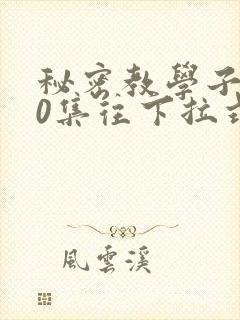 秘密教學子
0集往下拉式
風雲溪